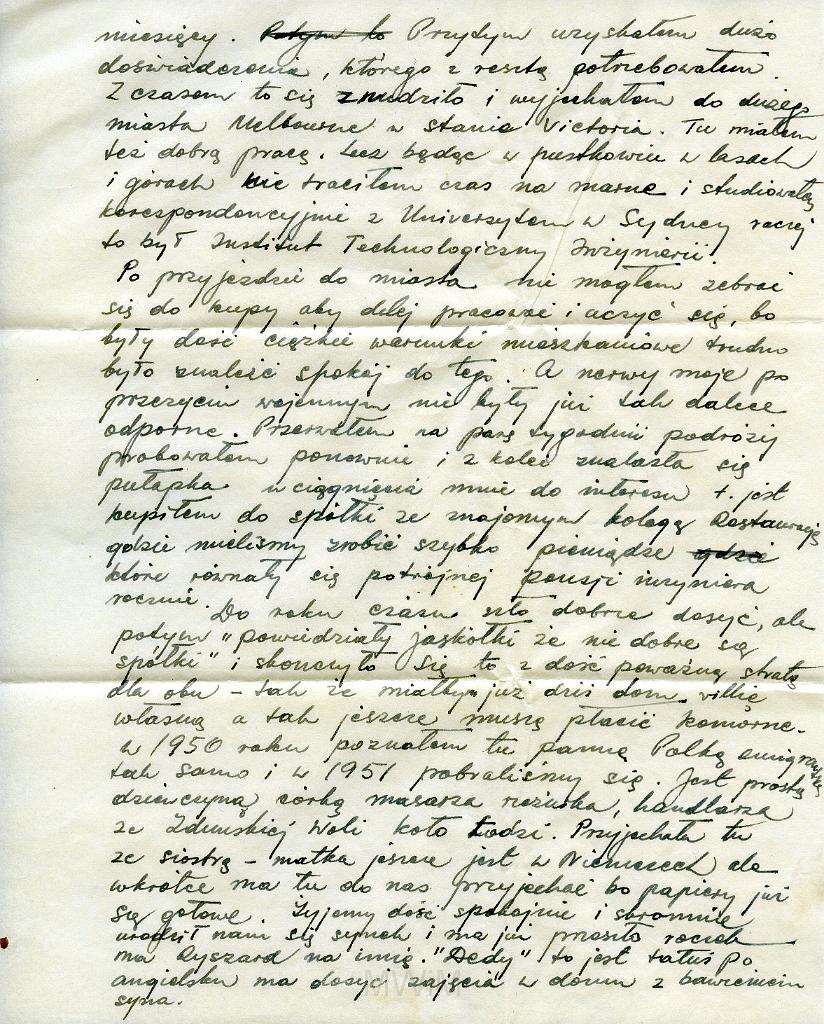 miesięcy. Potym to Przytym uzyskałem dużo
doświadczenia, którego z resztą potrzebowałem.
Z czasem to się znudziło i wyjechałem do dużego
miasta Melbourne w stanie Victoria. Tu miałem
też dobrą pracę. Lecz będąc w pustkowiu w lasach
i górach nie traciłem czas na marne i studiowałem
korespondencyjnie z Uniwersytem w Sydney raczej
to był Institut Technologiczny Inżynierii.
Po przyjeździe do miasta nie mogłem zebrać
się do kupy aby dalej pracować i uczyć się, bo
były dość ciężkie warunki mieszkaniowe trudno
było znaleść spokój do tego. A nerwy moje po
przeżyciu wojennym nie były już tak dalece
odporne. Przerwałem na parę tygodnii podróży
probowałem ponownie i z kolei znalazła się
pułapka wciągnięcia mnie do interesu t. jest
kupiłem do spółki ze znajomym kolegą Restaurację
gdzie mieliśmy zrobić szybko pieniądze gdzie
które równały się potrójnej pensji inżyniera
rocznie. Do roku czasu szło dobrze dosyć, ale
potym „powiedziały jaskółki że nie dobre są
spółki" i skończyło się to z dość poważną stratą
dla obu – tak że miałbym już dziś dom willię
własną a tak jeszcze muszę płacić komorne.
w 1950 roku poznałem tu pannę Polkę emigrantkę
tak samo i w 1951 pobraliśmy się. Jest prostą
dziewczyną córką masarza rzeźnika, handlarza
ze Zduńskiej Woli koło Łodzi. Przyjechała tu
ze siostrą – matka jeszcze jest w Niemczech ale
wkrótce ma tu do nas przyjechać bo papiery już
są gotowe. Żyjemy dość spokojnie i skromnie
urodził nam się synek i ma już przeszło roczek
ma Ryszard na imię. "Dedy" to jest tatuś po
angielsku ma dosyć zajęcia w domu z bawieniem
syna.
MWiM